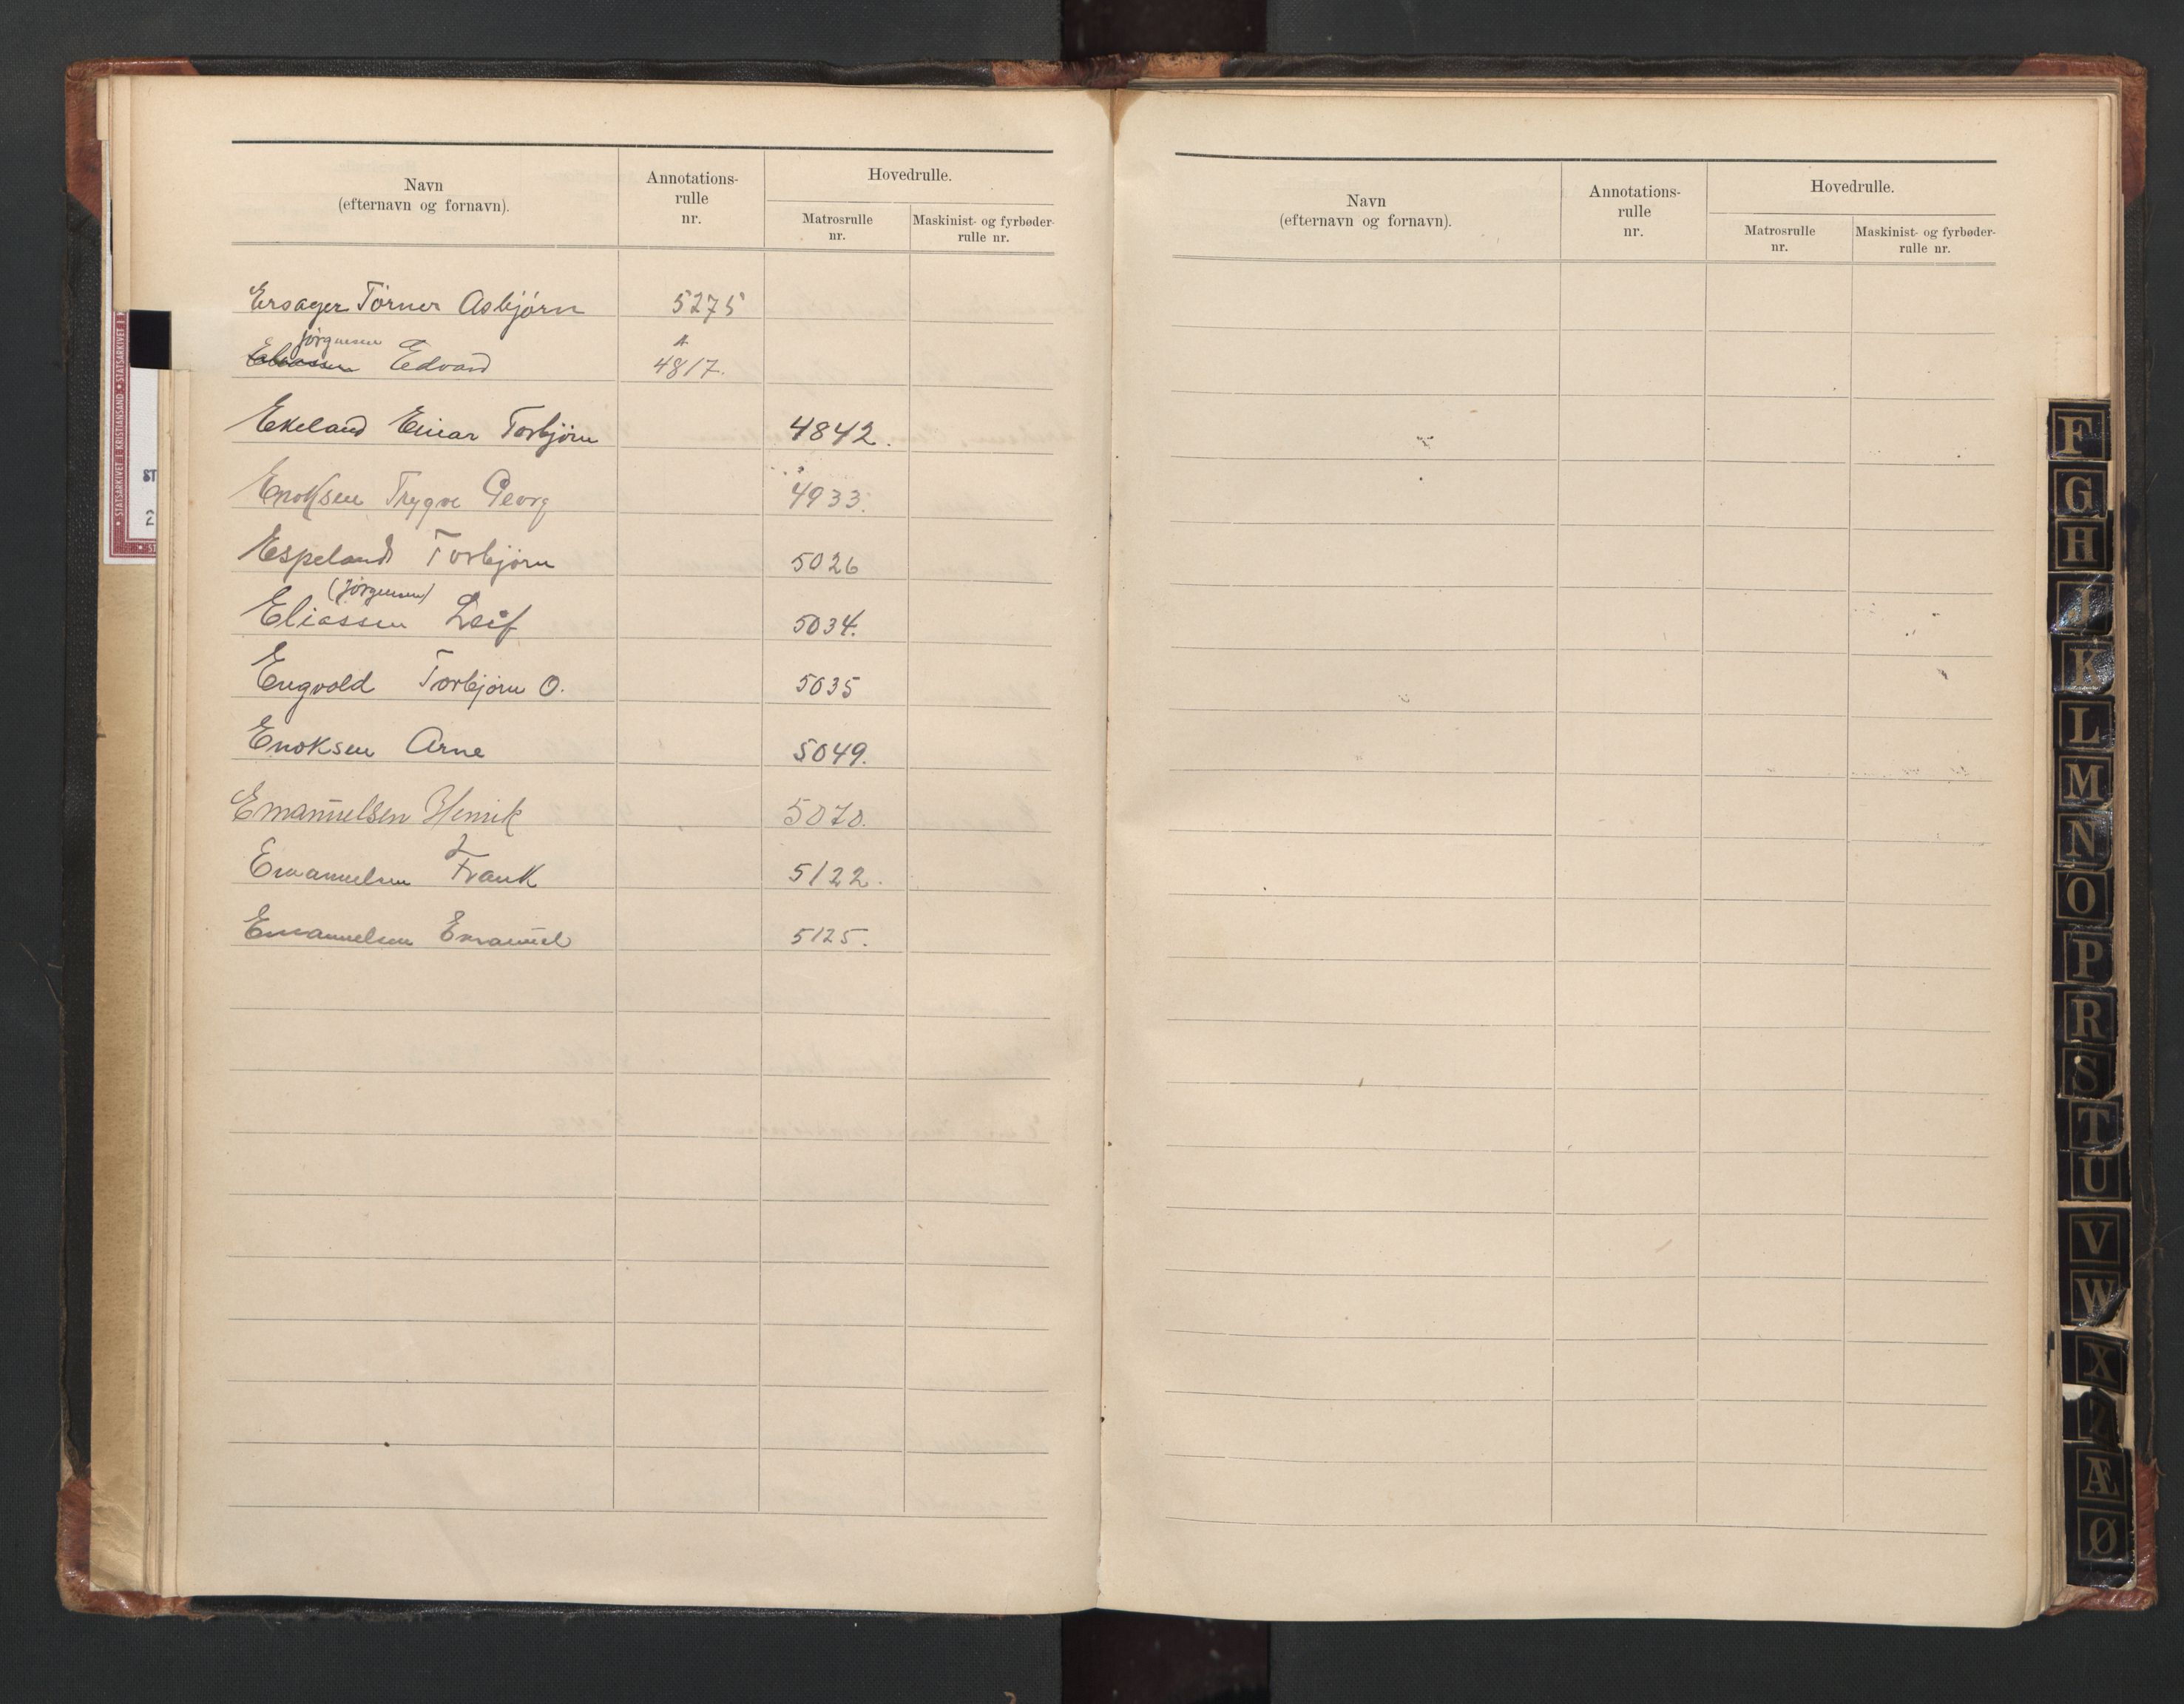 Navn
(efternavn og fornavn).
Annotations-
rulle
nr.
Hovedrulle.
Matrosrulle
nr.
Maskinist- og fyrbøder-
rulle nr.
Ersager Törner Asbjörn 5275
Jörgensen A
Eliassen Edvard 4817.
Ekeland Einar Torbjörn 4842.
Enoksen Trygve Georg 4933.
Espeland Torbjörn 5026
(Jörgensen)
Eliassen Leif 5034.
Engvold Torbjörn O. 5035
Enoksen Arne 5049.
Emanuelsen Henrik 5070.
Emanuelsen Frank 5122.
Emanuelsen Emanuel 5125.
Navn
(efternavn og fornavn).
Annotations-
rulle
nr.
Hovedrulle.
Matrosrulle
nr.
Maskinist- og fyrbøder-
rulle nr.
F
G
H
J
K
L
M
N
O
P
R
S
T
U
V
W
X
Z
Æ
Ø
STATSARKIVET I KRISTIANSAND • STATSARKIVET I
ST
2